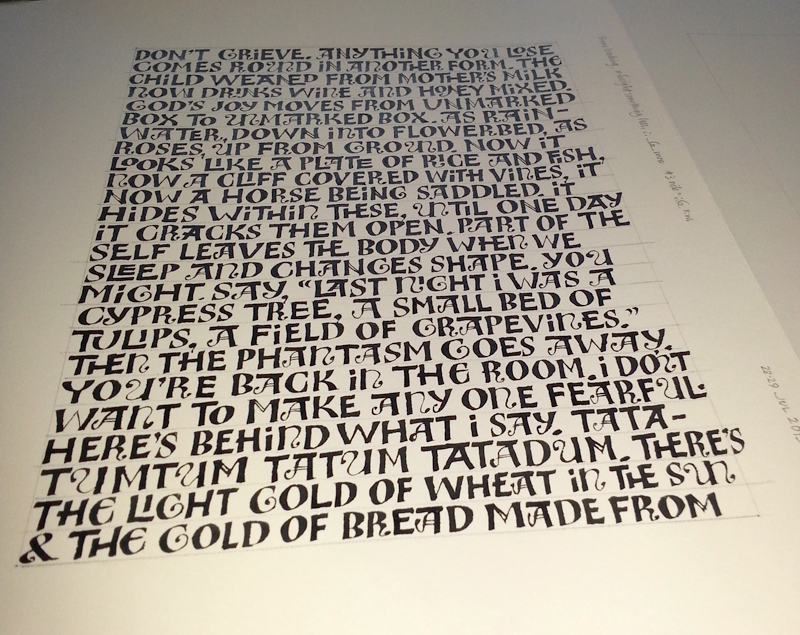 DON'T GRIEVE. ANYTHING YOU LOSE
COMES ROUND IN ANOTHER FORM. THE
CHILD WEANED FROM MOTHER'S MILK
NOW DRINKS WINE AND HONEY MIXED.
GOD'S JOY MOVES FROM UNMARKED
BOX TO UNMARKED BOX. AS RAIN-
WATER, DOWN INTO FLOWERBED, AS
ROSES, UP FROM GROUND. NOW IT
LOOKS LIKE A PLATE OF RICE AND FISH,
NOW A CLIFF COVERED WITH VINES, IT
NOW A HORSE BEING SADDLED. IT
HIDES WITHIN THESE, UNTIL ONE DAY
IT CRACKS THEM OPEN. PART OF THE
SELF LEAVES THE BODY WHEN WE
SLEEP AND CHANGES SHAPE. YOU
MIGHT SAY, "LAST NIGHT I WAS A
CYPRESS TREE, A SMALL BED OF
TULIPS, A FIELD OF GRAPEVINES."
THEN THE PHANTASM GOES AWAY.
YOU'RE BACK IN THE ROOM. I DON'T
WANT TO MAKE ANY ONE FEARFUL.
HERE'S BEHIND WHAT I SAY. TATA-
TUMTUM TATUM TATADUM. THERE'S
THE LIGHT GOLD OF WHEAT IN THE SUN
& THE GOLD OF BREAD MADE FROM
28-29 JUL